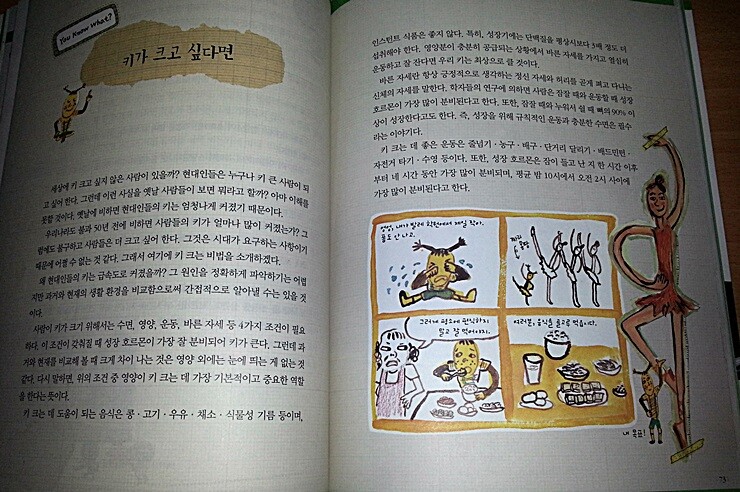 You Know What?
키가 크고 싶다면
세상에 키 크고 싶지 않은 사람이 있을까? 현대인들은 누구나 키 큰 사람이 되
고 싶어 한다. 그런데 이런 사실을 옛날 사람들이 보면 뭐라고 할까? 아마 이해를
못할 것이다. 옛날에 비하면 현대인들의 키는 엄청나게 커졌기 때문이다.
우리나라도 불과 50년 전에 비하면 사람들의 키가 얼마나 많이 커졌는가? 그
럼에도 불구하고 사람들은 더 크고 싶어 한다. 그것은 시대가 요구하는 사항이기
때문에 어쩔 수 없는 것 같다. 그래서 여기에 키 크는 비법을 소개하겠다.
왜 현대인들의 키는 급속도로 커졌을까? 그 원인을 정확하게 파악하기는 어렵
지만 과거와 현재의 생활 환경을 비교함으로써 간접적으로 알아낼 수는 있을 것
이다.
사람이 키가 크기 위해서는 수면, 영양, 운동, 바른 자세 등 4가지 조건이 필요
하다. 이 조건이 갖춰질 때 성장 호르몬이 가장 잘 분비되어 키가 큰다. 그런데 과
거와 현재를 비교해 볼 때 크게 차이 나는 것은 영양 외에는 눈에 띄는 게 없는 것
같다. 다시 말하면, 위의 조건 중 영양이 키 크는 데 가장 기본적이고 중요한 역할
을 한다는 뜻이다.
키 크는 데 도움이 되는 음식은 콩 · 고기 · 우유 · 채소 · 식물성 기름 등이며,
인스턴트 식품은 좋지 않다. 특히, 성장기에는 단백질을 평상시보다 3배 정도 더
섭취해야 한다. 영양분이 충분히 공급되는 상황에서 바른 자세를 가지고 열심히
운동하고 잘 잔다면 우리 키는 최상으로 클 것이다.
바른 자세란 항상 긍정적으로 생각하는 정신 자세와 허리를 곧게 펴고 다니는
신체의 자세를 말한다. 학자들의 연구에 의하면 사람은 잠잘 때와 운동할 때 성장
호르몬이 가장 많이 분비된다고 한다. 또한, 잠잘 때와 누워서 쉴 때 뼈의 90% 이
상이 성장한다고도 한다. 즉, 성장을 위해 규칙적인 운동과 충분한 수면은 필수
라는 이야기다.
키 크는 데 좋은 운동은 줄넘기 · 농구 · 배구 · 단거리 달리기 · 배드민턴 ·
자전거 타기 · 수영 등이다. 또한, 성장 호르몬은 잠이 들고 난 지 한 시간 이후
부터 네 시간 동안 가장 많이 분비되며, 평균 밤 10시에서 오전 2시 사이에
가장 많이 분비된다고 한다.
엉엉, 내가 발레 학원에서 제일 작아.
폼도 안 나고.
그러게 평소에 편식하지
말고 잘 먹어야지.
여러분, 음식을 골고루 먹읍시다.
내 목표!
73